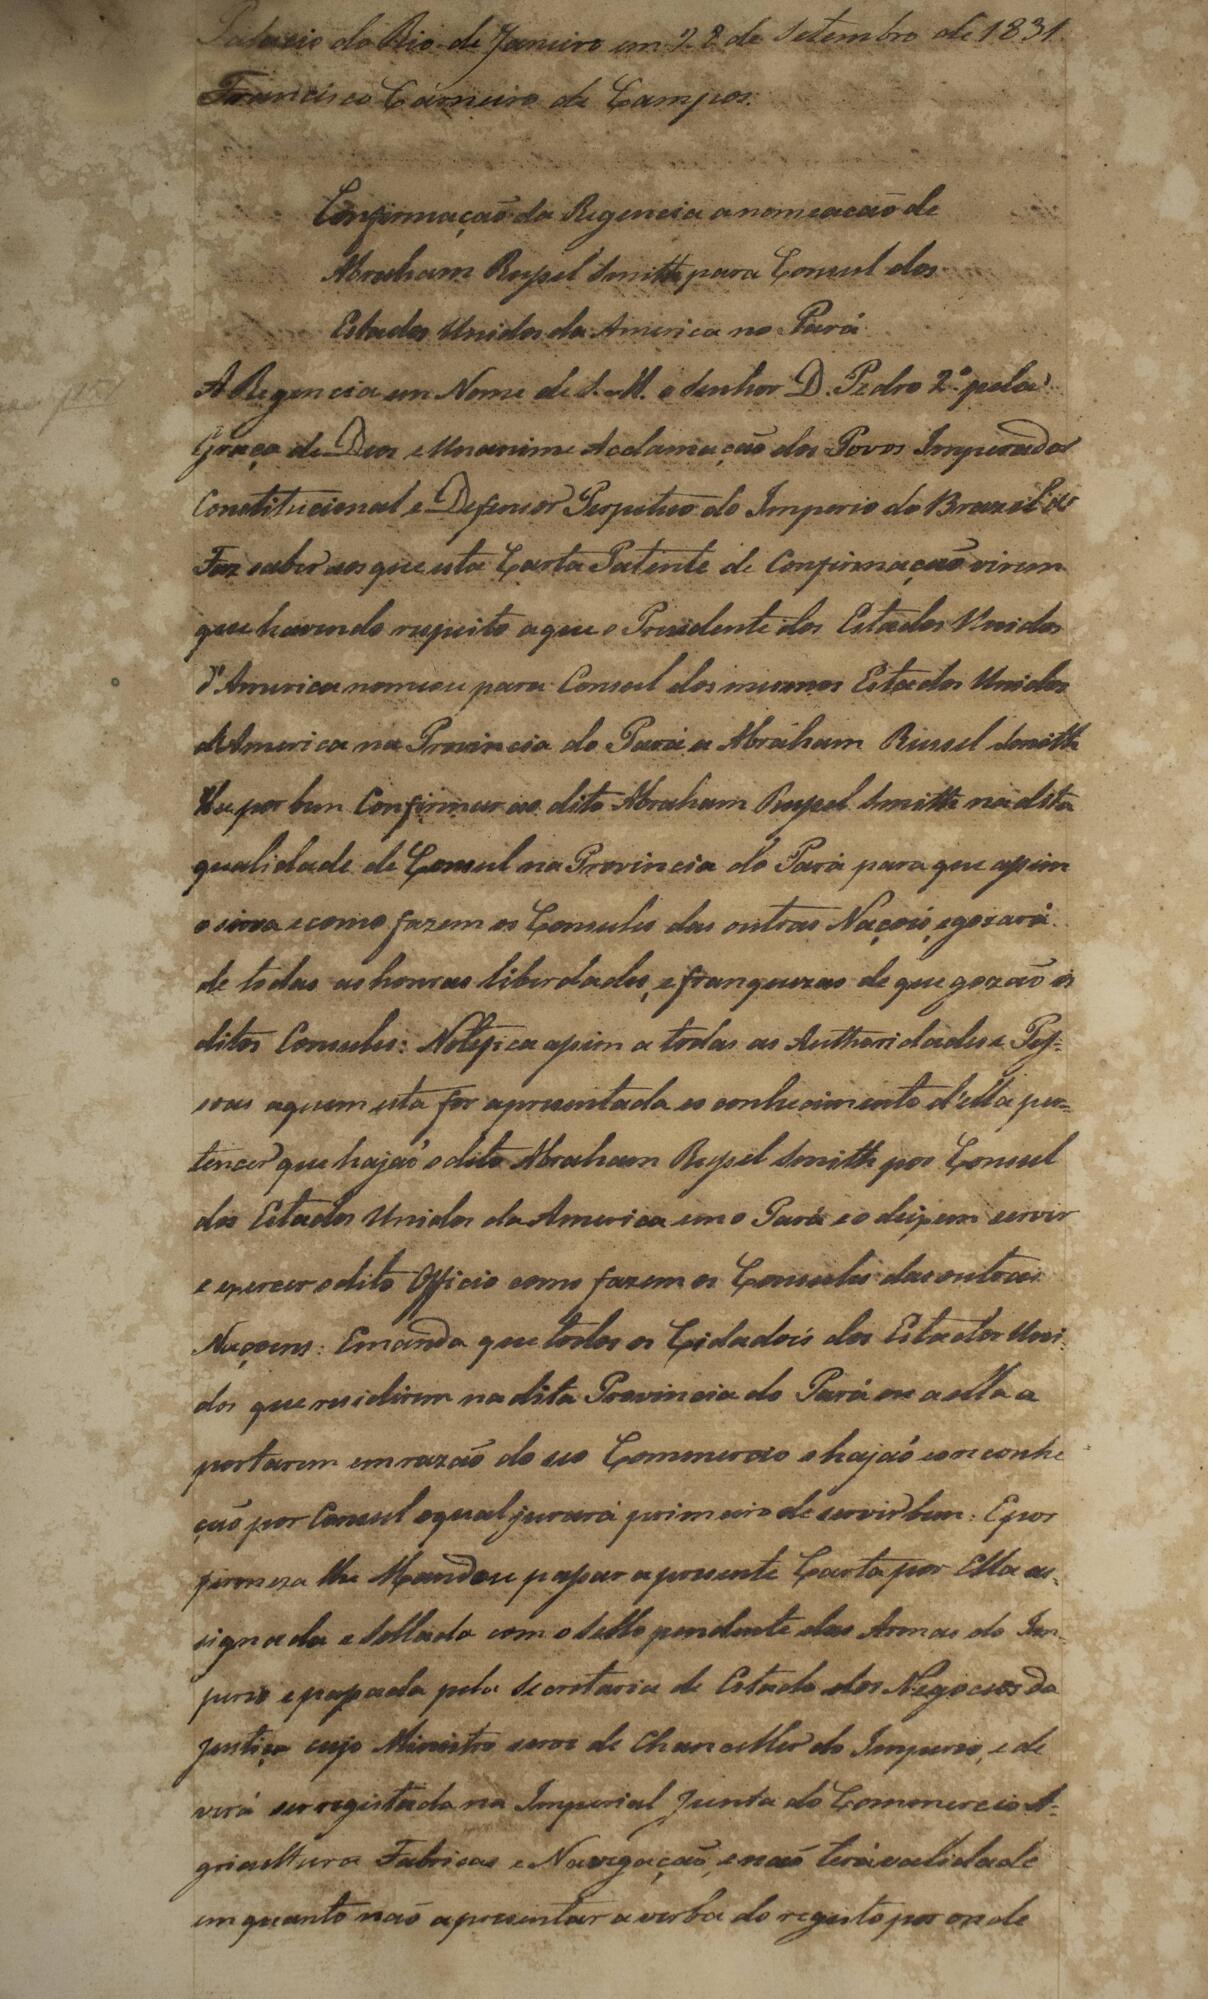 Palacio do Rio de Janeiro em 28 de Setembro de 1831.
Francisco Carneiro de Campos.
Confirmação da Regencia a nomeacaõ de
Abraham Russel Smith para Consul dos
Estados Unidos da America no Pará
A Regencia em Nome de S. M. o Senhor D. Pedro 2.º pela
Graça de Deos e Unanime Acclamaçaõ dos Povos Imperador
Constitucional e Defensor Perpetuo do Imperio do Brazil &
Faz saber aos que esta Carta Patente de Confirmaçaõ virem
que havendo respeito a que o Presidente dos Estados Unidos
d'America nomeou para Consul dos mesmos Estados Unidos
d'America na Provincia do Pará a Abraham Russel Smith
Ha por bem Confirmar ao dito Abraham Russel Smith na dita
qualidade de Consul na Provincia do Pará para que assim
o sirva e como fazem os Consules das outras Naçois, e gozará
de todas as honras liberdades, e franquezas de que gozaõ os
ditos Consules: Notefica assim a todas as Authoridades e Pes-
soas a quem esta for apresentada e o conhecimento d'ella per-
tencer que hajaõ o dito Abraham Russel Smith por Consul
dos Estados Unidos da America em o Pará e o deixem servir
e exercer o dito Officio como fazem os Consules das outras
Naçoens: E manda que todos os Cidadois dos Estados Uni-
dos que residirem na dita Provincia do Pará ou a ella a
portarem em razaõ do seo Commercio o hajaõ e reconhe
çaõ por Consul o qual jurará primeiro de servir bem: E por
firmeza lhe Mandou passar a presente Carta por Ella as-
signada e sellada com o Sello pendente das Armas do Im-
perio e passada pela Secretaria de Estado dos Negocios da
Justiça cujo Ministro serve de Chanceller do Imperio, e de
verá ser registada na Imperial Junta do Commercio A-
gricultura Fabricas e Navegaçaõ, e naõ terá validade
em quanto naõ apresentar a verba do registo por onde